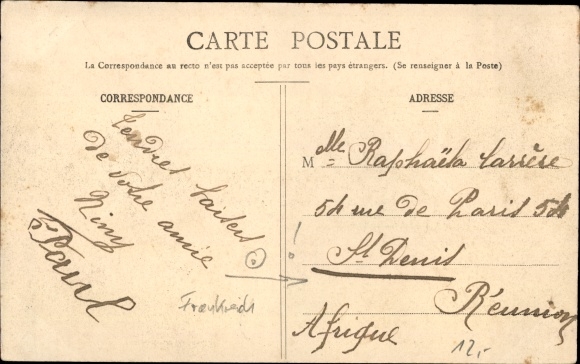 CARTE POSTALE
La Correspondance au recto n'est pas acceptée par tous les pays étrangers. (Se renseigner à la Poste)
CORRESPONDANCE
Tendres baisers
de votre amie
Niny
Paul
Frankreich
ADRESSE
Mlle Raphaëla Carrère
54 rue de Paris 54
St Denis
Réunion
Afrique
12,-